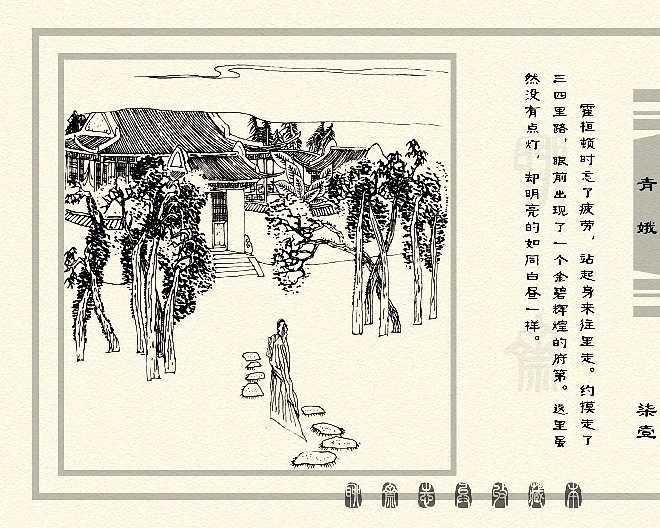 霍桓顿时忘了疲劳，站起身来往里走。约摸走了
三四里路，眼前出现了一个金碧辉煌的府第。这里虽
然没有点灯，却明亮的如同白昼一样。
青娥
柒壹
聊斋志异收藏本